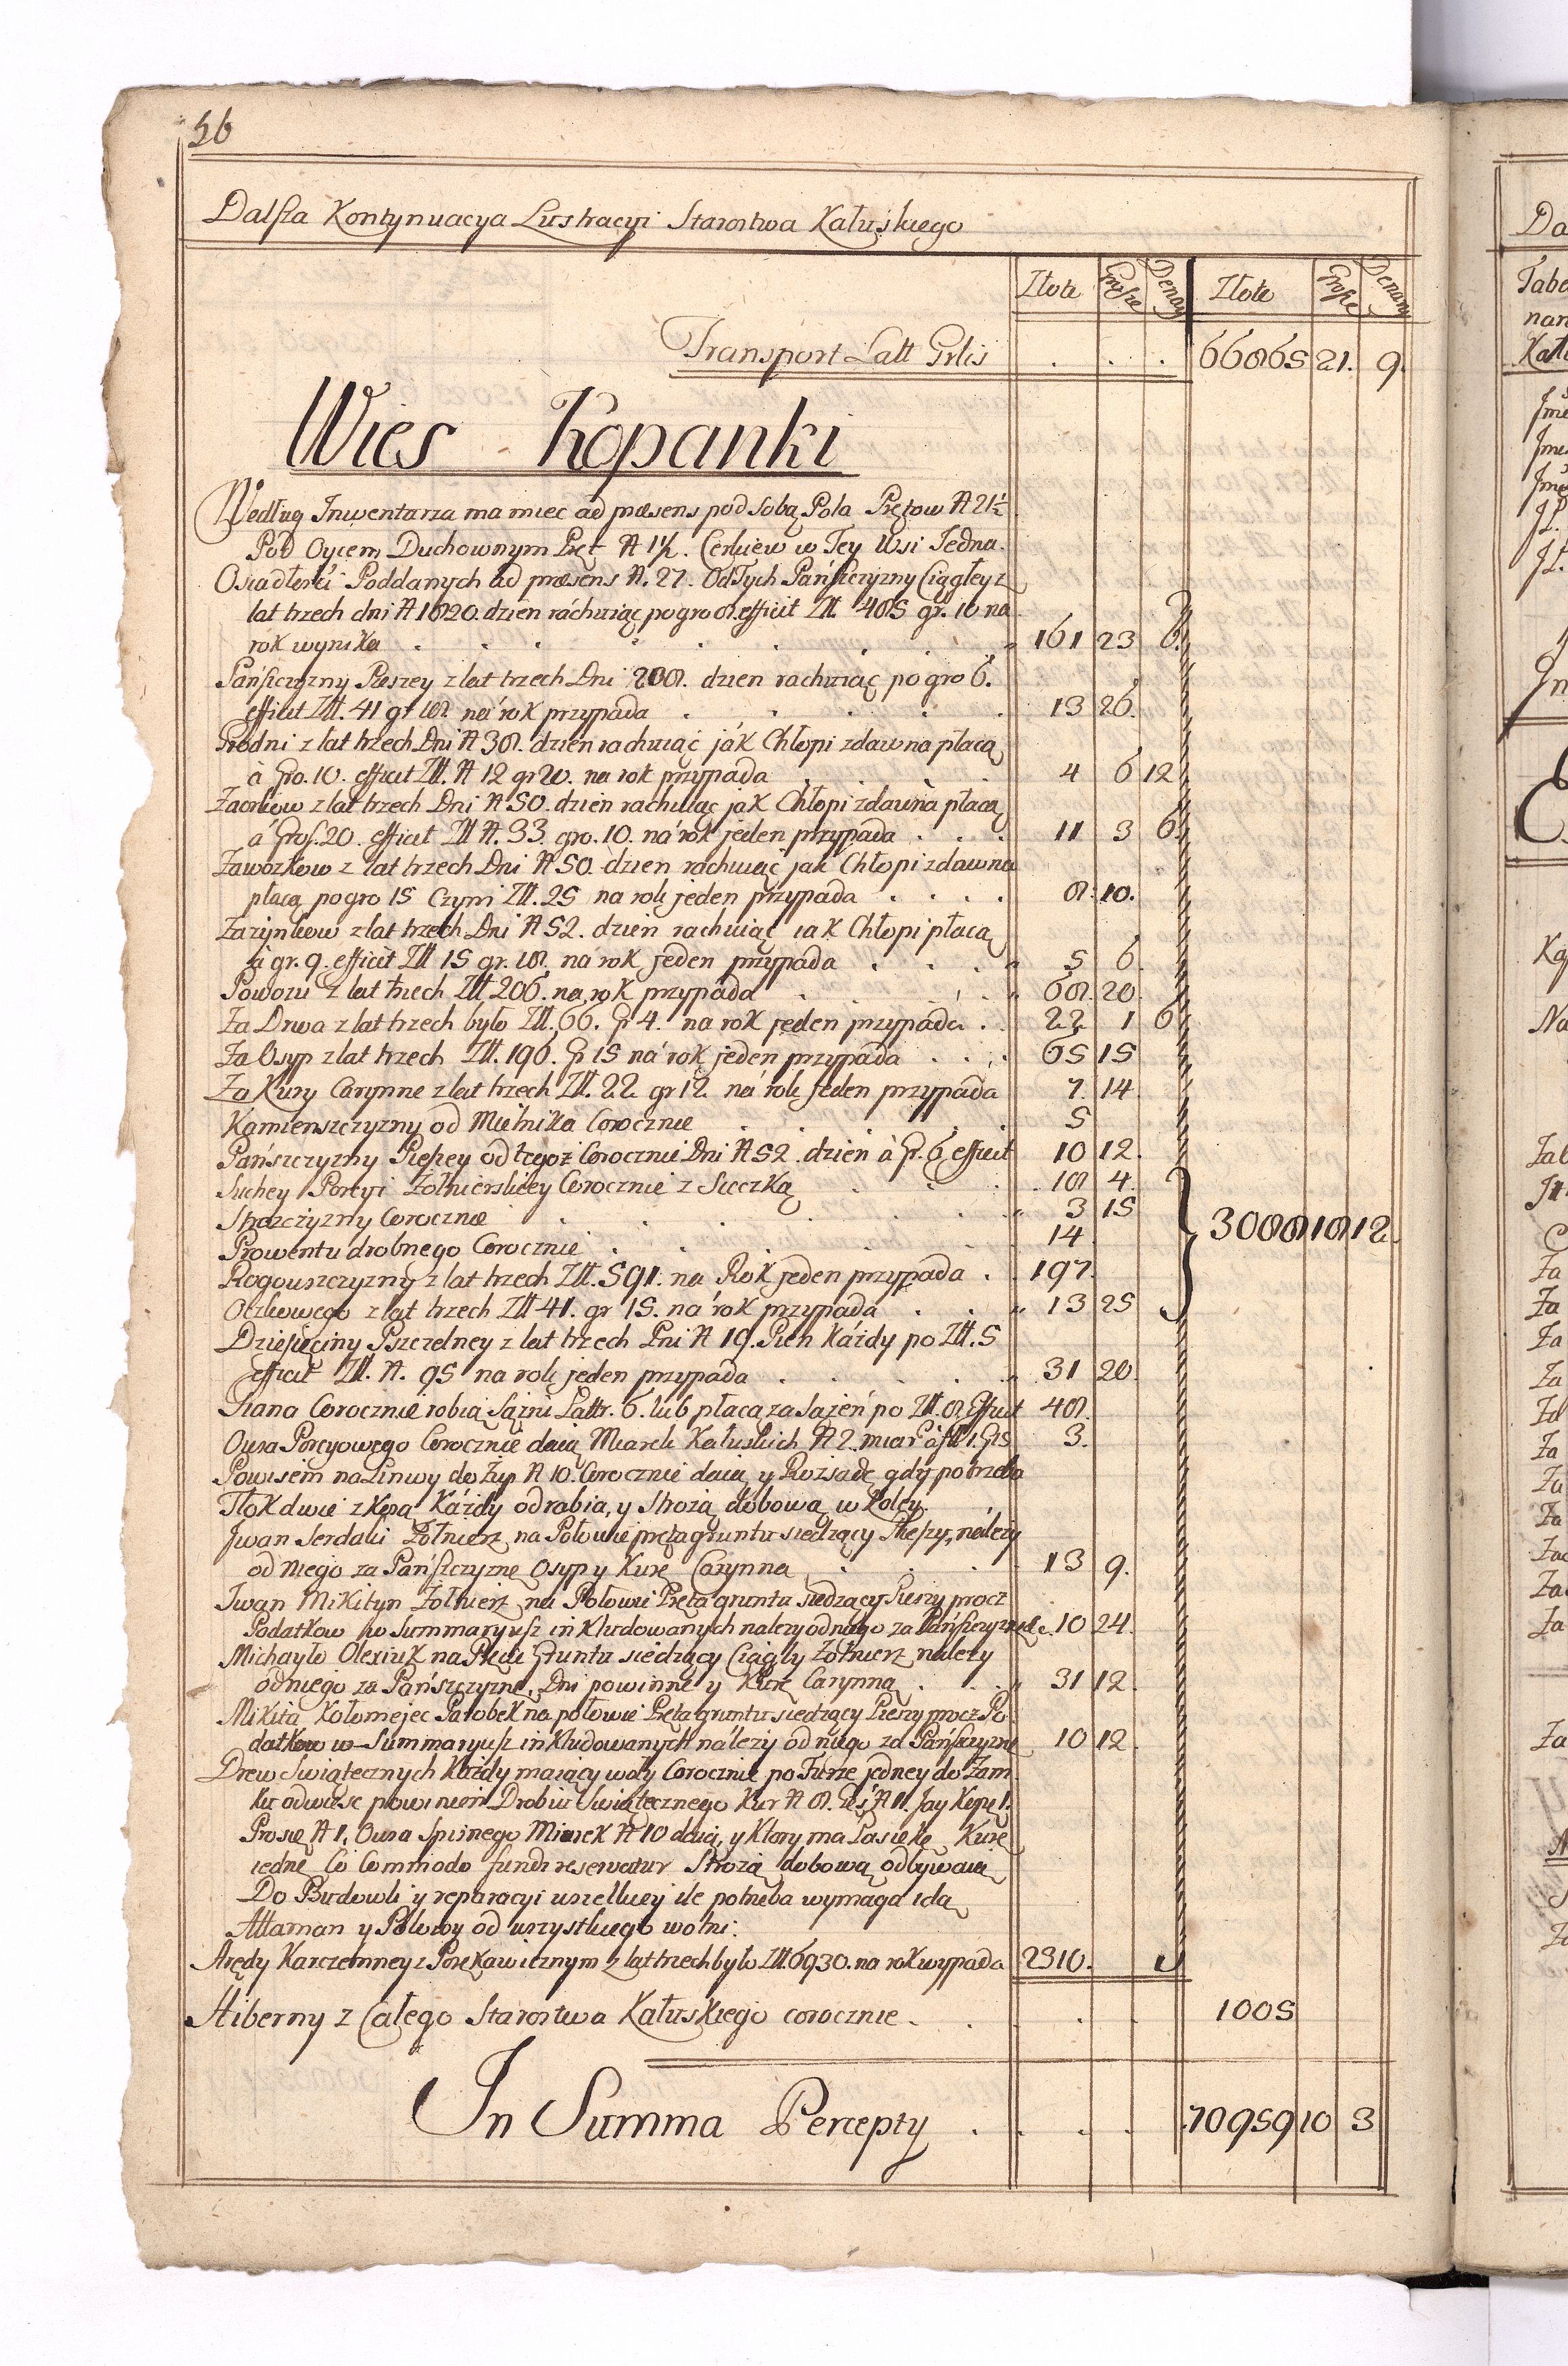 56
Dalsza Kontynuacya Lustracyi Starostwa Kałuskiego
Złote Grosze Denary Złote Grosze Denary
Transport Latt Grtis . . . 66865 21. 9.
Wies Kopanki
Według Inwentarza ma miec ad præsens pod sobą Pola Prętow N 21½
Pod Oycem Duchownym Pręt N 1½. Cerkiew w Tey Wsi Jedna.
Osiadłości Poddanych ad præsens N. 27. Od Tych Pańszczyzny Ciągłey z
lat trzech dni N 1820. dzien ráchuiąc po gro 8. efficit Złł. 485 gr. 10 na
rok wynika . . . 161 23 6.
Pańszczyzny Pieszey z lat trzech Dni 208. dzien rachuiąc po gro 6.
efficit Złł. 41 gr 18. ná rok przypada . . . 13 26.
z lat trzech Dni N 38. dzien rachuiąc ják Chłopi zdawna płacą
à Gro. 10. efficit Złł. N 12 gr 20. na rok przypada . . . 4 6 12
Zaorkow z lat trzech Dni N 50. dzien rachuiąc jak Chłopi zdawna płacą
à Gros. 20. efficit Złł N. 33. gro. 10. ná rok jeden przypada . . . 11 3 6.
Zawozkow z lat trzech Dni N 50. dzien rachuiąc jak Chłopi zdawna
płacą po gro 15 Czyni Złł. 25 na rok jeden przypada . . . 8. 10.
Zazynkow z lat trzech Dni N 52. dzien rachuiąc iak Chłopi płacą
à gr. 9. efficit Złł 15 gr. 18. ná rok jeden przypada . . . 5 6.
Powozu z lat trzech Złł 206. na rok przypada . . . 68. 20.
Za Drwa z lat trzech było Złł. 66. Gr 4. na rok jeden przypada . . 22 1 6
Za Osyp z lat trzech Złł. 196. Gr 15 ná rok jeden przypada . . . 65 15
Za Kury Carynne z lat trzech Złł. 22 gr 12 ná rok jeden przypada 7. 14
Kamienszczyzny od Mielnika Corocznie . . . 5
Pańszczyzny Pieszey od tegoz Corocznie Dni N 52. dzień à Gr. 6 efficit 10 12.
Suchey Porcyi Zołnierskiey Corocznie z Sieczką . . . 18 4.
Strozczyzny Corocznie . . . 3 15
Prowentu drobnego Corocznie . . . 14 3088 18 12.
Rogouszczyzny z lat trzech Złł. 591. na Rok jeden przypada . . 197.
Oczkowego z lat trzech Złł 41. gr 15. ná rok przypada . . . 13 25
Dziesięciny Pszczelney z lat trzech Pni N 19. Pien káżdy po Złł. 5
efficit Złł. N. 95 na rok jeden przypada . . . 31 20.
Siana Corocznie robią Sążni Lattr. 6. lub płacą za Sążeń po Złł. 8. Efficit 48.
Owsa Porcyowego Corocznie daią Miarek Kałuskich N 2. miar à Złł 1. Gr 15 3.
Powisem na Linwy do Zup N 10. Corocznie daią y Rozsadę gdy potrzeba
Tłok dwie z Kosą Káżdy odrabia, y Strożą dobową w Koley.
Iwan Serdaki Zołnierz na Połowie pręta gruntu siedzący Pieszy, należy
od Niego za Pańszczyznę Osyp y Kurę Carynna . . . 13 9.
Iwan Mikityn Zołnierz na Połowie Pręta gruntu siedzący Pieszy procz
Podatkow w Summaryusz inkludowanych nalezy od niego za Pańszczyznę . 10 24.
Michayło Olexiuk na Pręcie Gruntu siedzący Ciągły Zołnierz należy
od niego za Pańszczyznę, Dni powinne y Kurę Carynną . . . 31 12.
Mikita Kołomejec Parobek na połowie Pręta gruntu siedzący Pieszy procz Po
datkow w Summaryusz inkludowanych nálezy od niego za Pańszczyznę 10 12.
Drew Swiątecznych Káżdy maiący woły Corocznie po Furze jedney do Zam
ku odwiesc powinien Drobiu Swiątecznego Kur N 8. Gęś N 1. Jay Kopę 1.
Prosię N 1. Owsa Spisnego Miarek N 10 daią, y Ktory ma Pasiekę Kurę
iednę Co Commodo fundi reservatur Strożą dobową odbywaią
Do Budowli y reparacyi wszelkiey ile potrzeba wymaga idą
Attaman y Polowy od wszystkiego wolni.
Arędy Karczemney z Porękawicznym z lat trzech było Złł 6930. na rok wypada 2310.
Hiberny z Całego Starostwa Kałuskiego corocznie . . . 1005
In Summa Percepty . . . 70959 10 3
Da
Tabe
nar
Kału